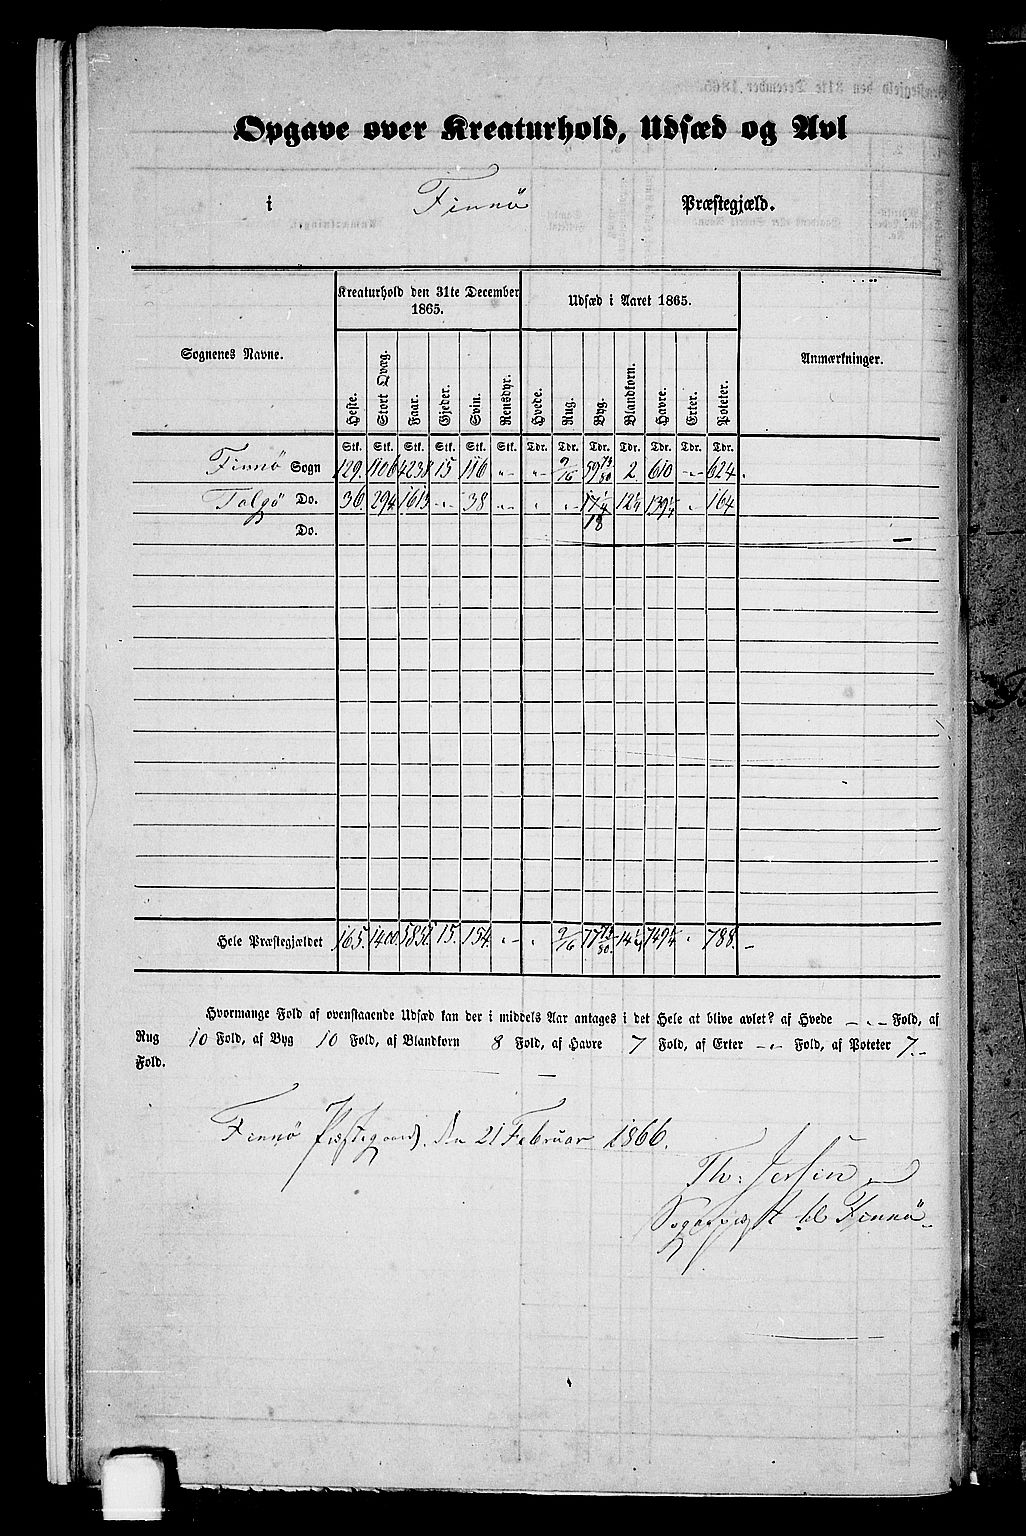 Opgave over Kreaturhold, Udsæd og Avl
i Finnö Præstegjæld.
Sognenes Navne. Kreaturhold den 31te December 1865. Udsæd i Aaret 1865. Anmærkninger.
Heste. Stort Qvæg. Faar. Gjeder. Svin. Rensdyr. Hvede. Rug. Byg. Blandkorn. Havre. Erter. Poteter.
Stk. Stk. Stk. Stk. Stk. Stk. Tdr. Tdr. Tdr. Tdr. Tdr. Tdr. Tdr.
Finnö Sogn 129. 1106 4238 15 116 " " 9/16 59 73/80 2 610 " 624.
Talgö Do. 36. 294 1613 " 38 " " " 17 1/4 12 1/4 139 1/4 " 164
18
Do.
Hele Præstegjældet 165. 1400 5851 15. 154. " " 9/16 77 73/80 14 1/4 749 1/4 " 788.
Hvormange Fold af ovenstaaende Udsæd kan der i middels Aar antages i det Hele at blive avlet? af Hvede - " - Fold, af
Rug 10 Fold, af Byg 10 Fold, af Blandkorn 8 Fold, af Havre 7 Fold, af Erter - " - Fold, af Poteter 7.-
Fold.
Finnö Præstegaard, den 21 Februar 1866.
Th: Jersin
Sogneprest til Finnö